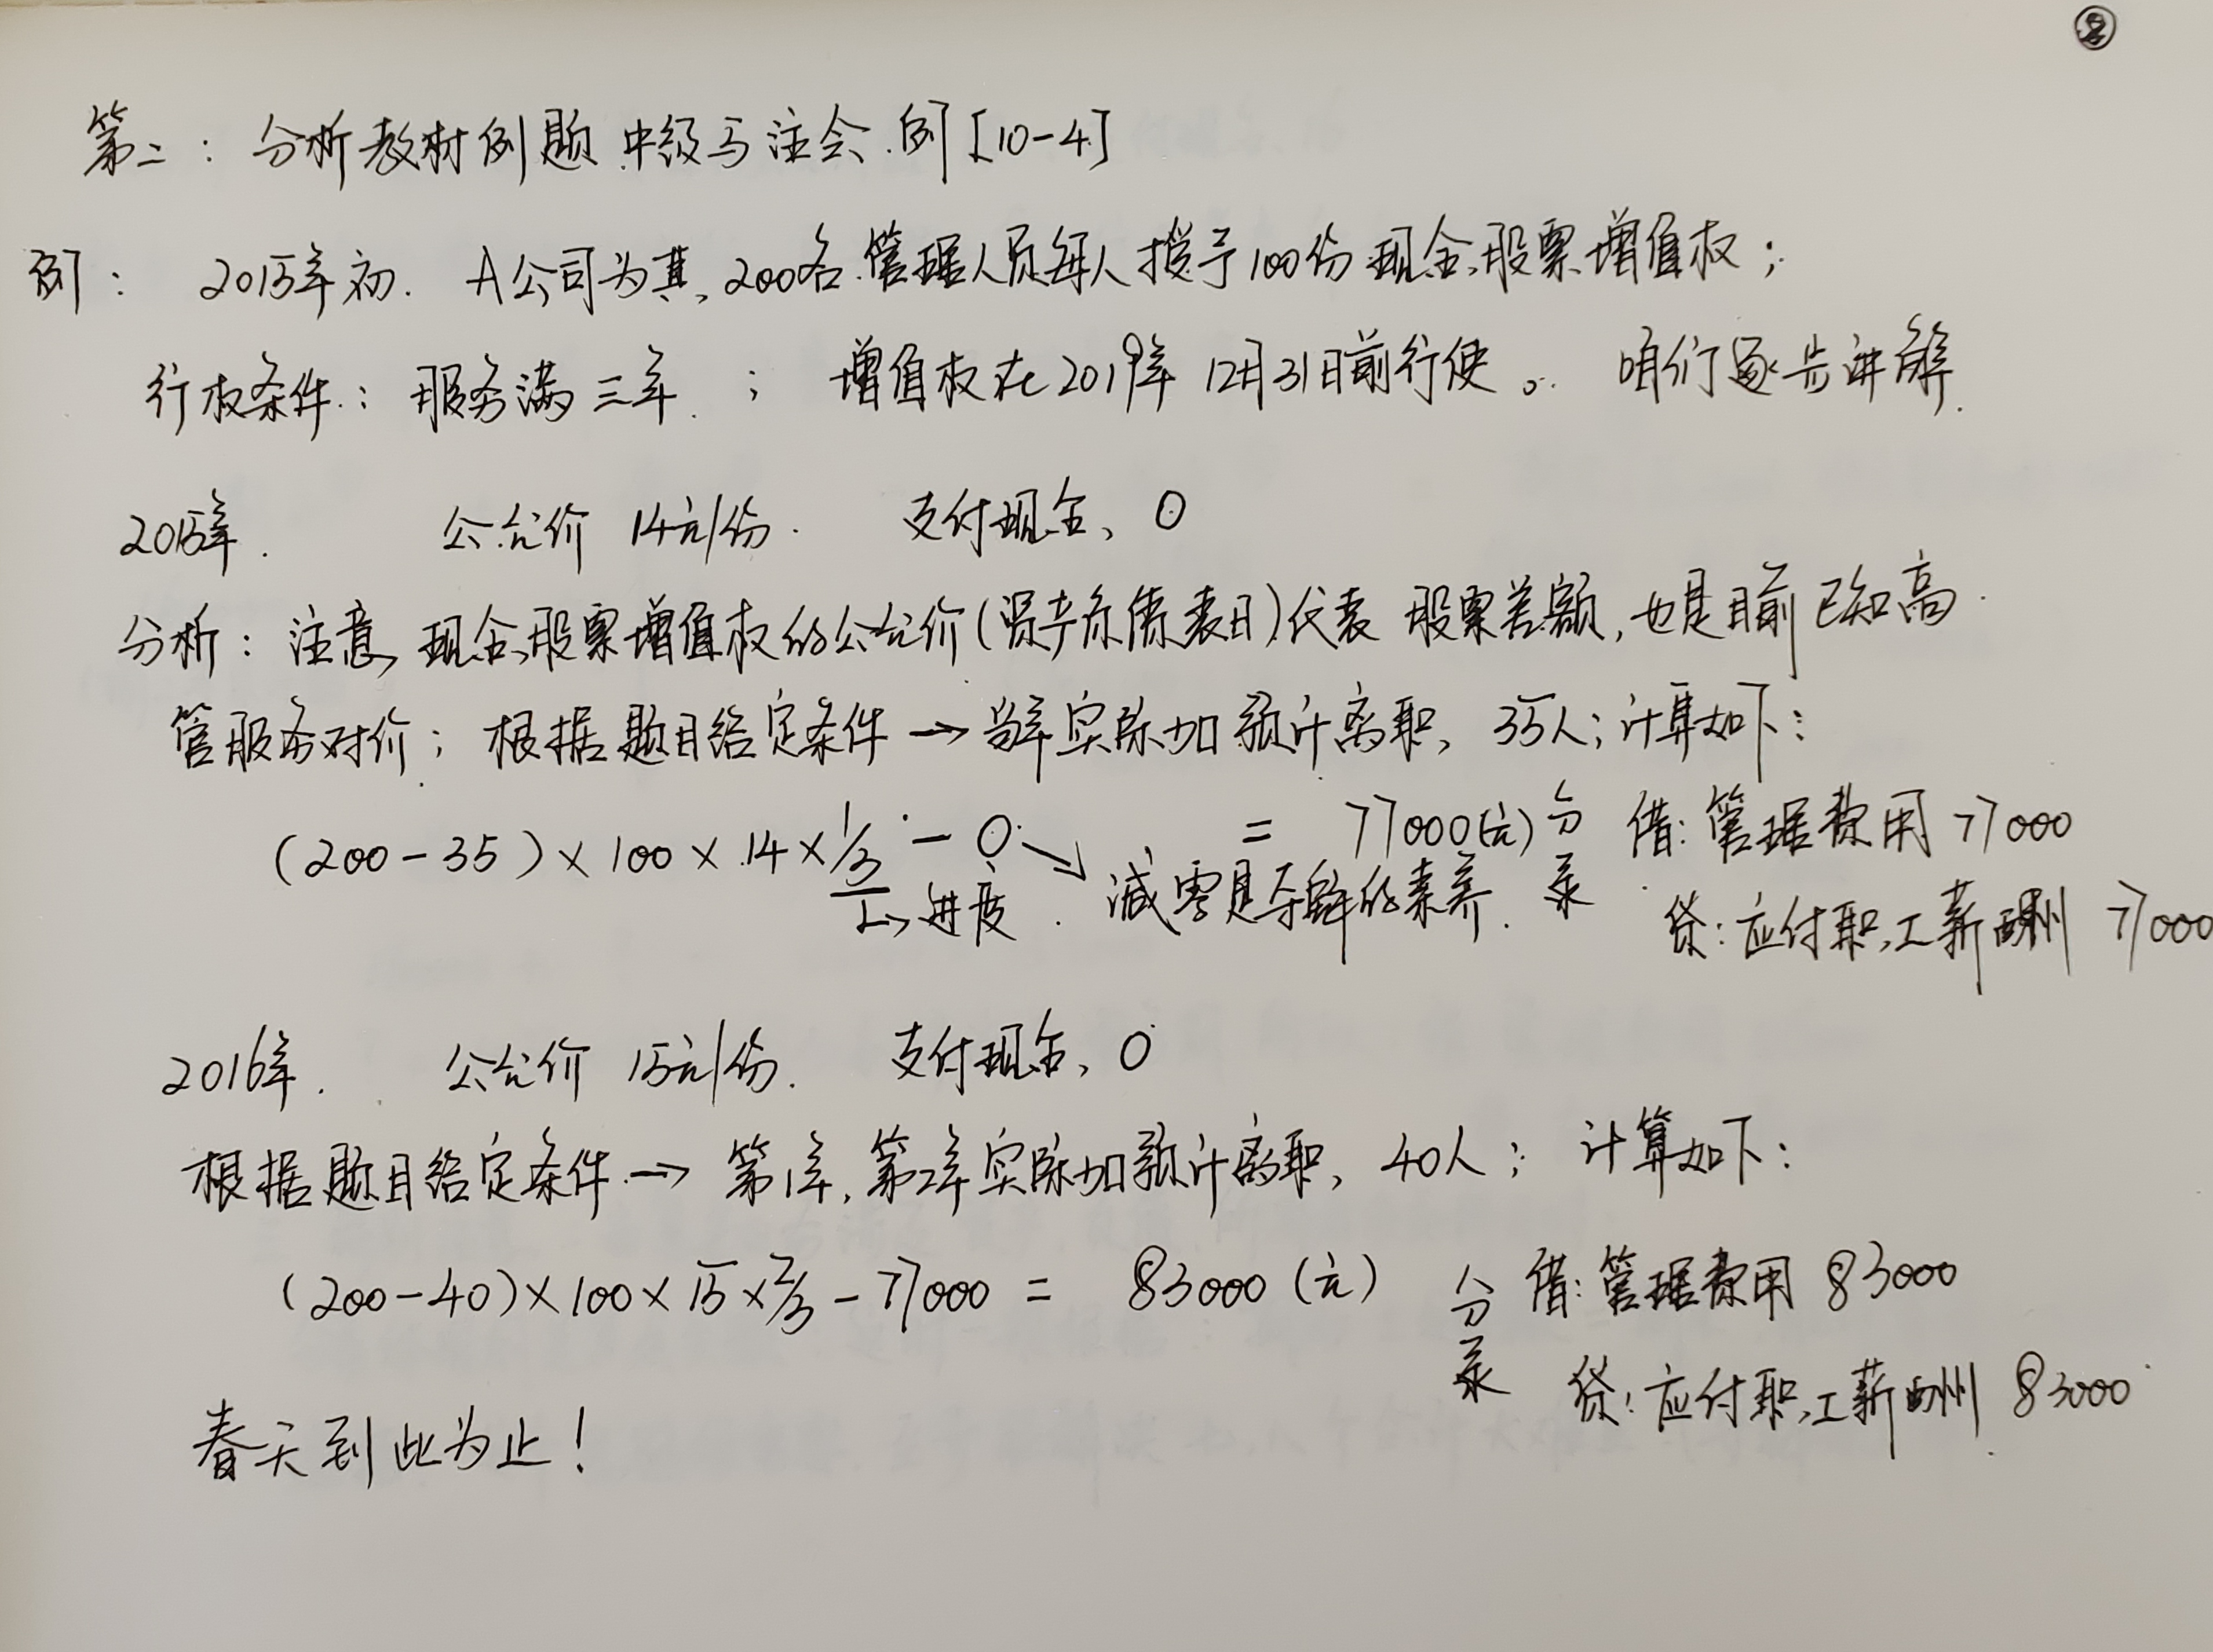 ②
第二：分析教材例题 中级与注会.例[10-4]
例：2015年初.A公司为其200名管理人员每人授予100份现金股票增值权；
行权条件：服务满三年；增值权在2019年12月31日前行使。咱们逐步讲解.
2015年.公允价14元/份.支付现金0
分析：注意,现金股票增值权的公允价(资产负债表日)代表 股票差额,也是目前已知高
管服务对价；根据题目给定条件→当年实际加预计离职35人；计算如下：
(200-35)×100×14×1/3-0 = 77000(元) 分录 借：管理费用 77000
进度.减零是夺解的素养. 贷：应付职工薪酬 77000
2016年.公允价 15元/份.支付现金0
根据题目给定条件→第1年,第2年实际加预计离职40人；计算如下：
(200-40)×100×15×2/3-77000 = 83000(元) 分录 借：管理费用 83000
贷：应付职工薪酬 83000
春天到此为止！